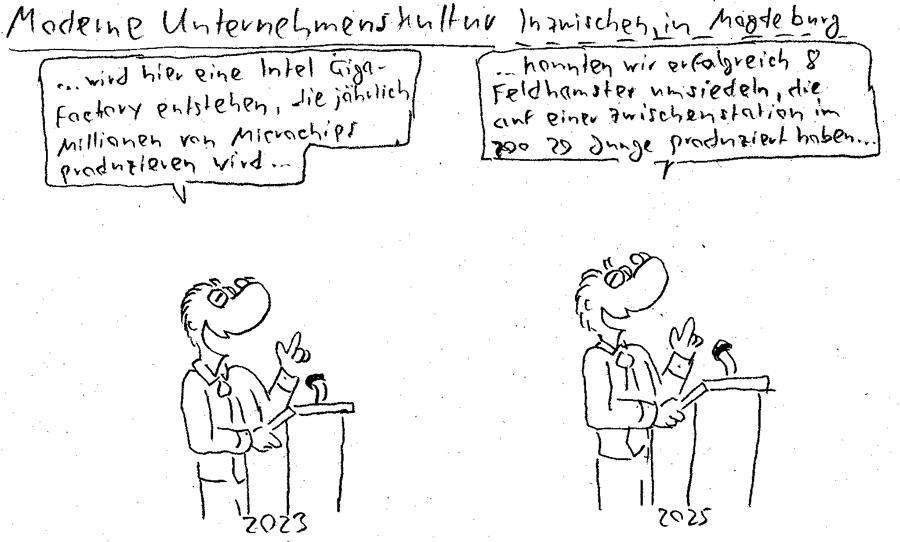 Moderne Unternehmenskultur Inzwischen, in Magdeburg
...wird hier eine Intel Giga-
Factory entstehen, die jährlich
Millionen von Microchips
produzieren wird...
...konnten wir erfolgreich 8
Feldhamster umsiedeln, die
auf einer Zwischenstation im
Zoo 29 Junge produziert haben...
2023
2025